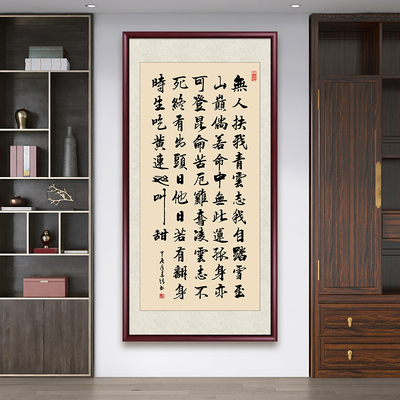 無人扶我青雲志我自踏雪至
山巔倘若命中無此運孤身亦
可登昆侖苦厄難奪凌雲志不
死終有出頭日他日若有翻身
時生吃黄連也叫甜